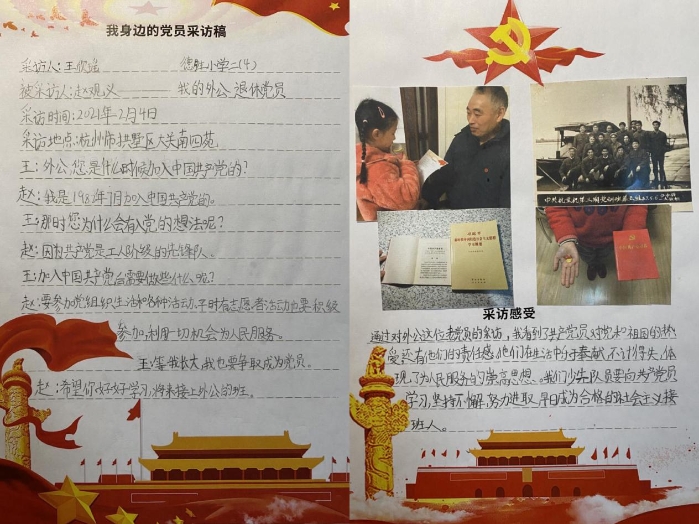 我身边的党员采访稿
采访人:王欣瑶 德胜小学二(4)
被采访人:赵观义 我的外公,退休党员
采访时间:2021年2月4日
采访地点:杭州市拱墅区大关南四苑
王:外公,您是什么时候加入中国共产党的?
赵:我是1984年7月加入中国共产党的。
王:那时您为什么会有入党的想法呢?
赵:因为共产党是工人阶级的先锋队。
王:加入中国共产党需要做些什么呢?
赵:要参加党组织生活和各种活动,平时有志愿者活动也要积极
参加,利用一切机会为人民服务。
王:等我长大,我也要争取成为党员。
赵:希望你好好学习,将来接上外公的班。
采访感受
通过对外公这位老党员的采访,我看到了共产党员对党和祖国的热
爱,还有他们的责任感。他们在生活中甘于奉献,不计得失,体
现了为人民服务的崇高思想。我们少先队员要向共产党员
学习,坚持不懈,努力进取,早日成为合格的社会主义接
班人。